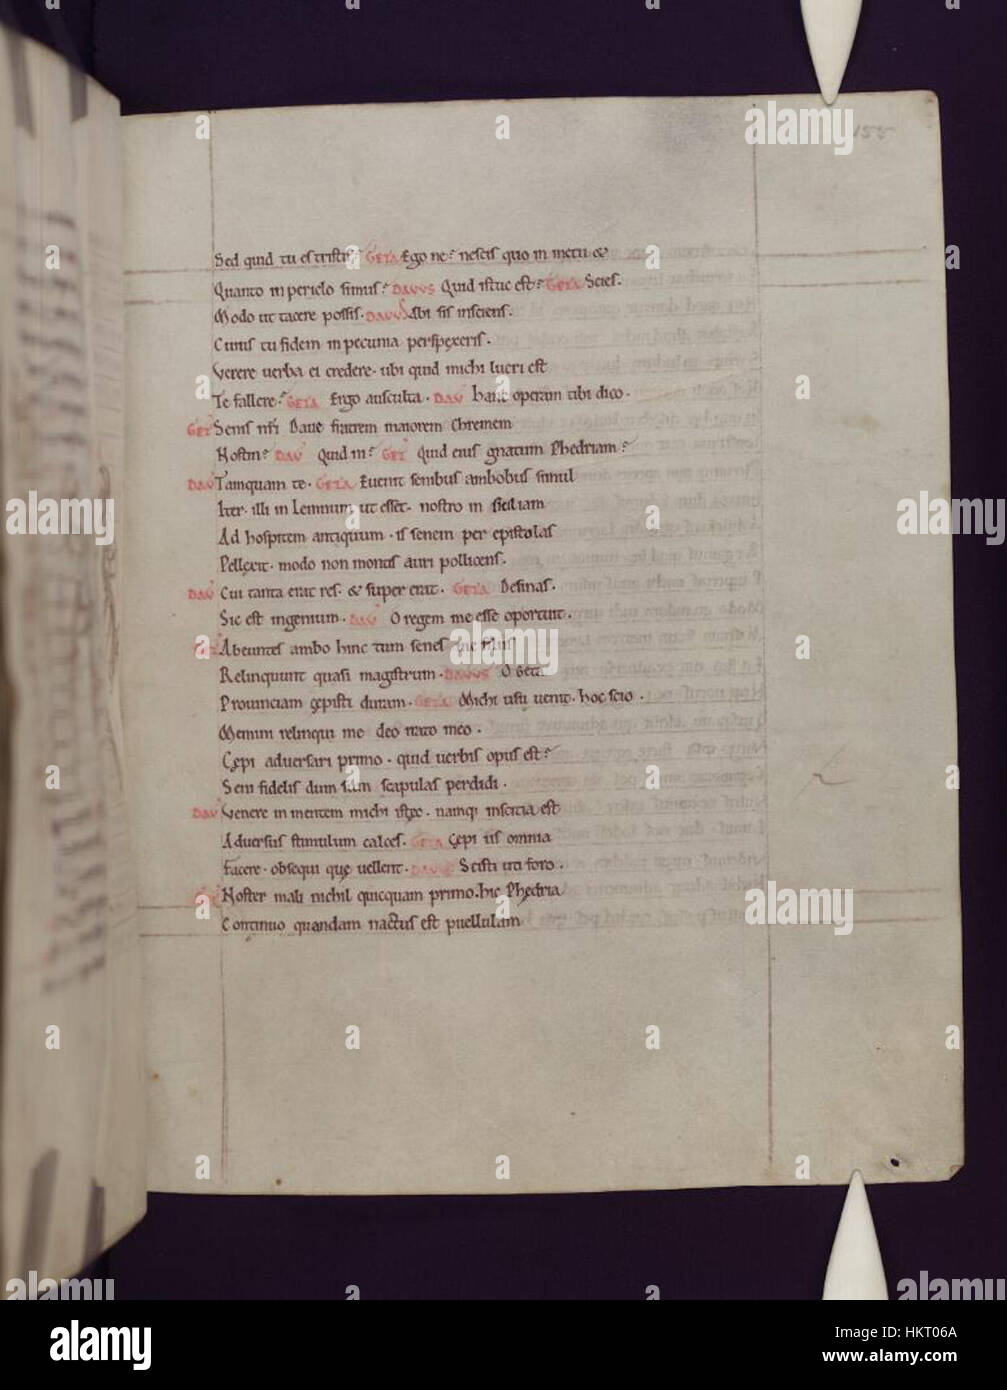 155
Sed quid tu es tristis? GETA Ego ne? nescis quo in metu &
Quanto in periclo simus? DAVUS Quid istuc est? GETA Scies.
Modo ut tacere possis. DAVUS Abi sis insciens.
Cuius tu fidem in pecunia perspexeris.
Verere uerba ei credere. ubi quid michi lucri est
Te fallere? GETA Ergo ausculta. DAV hanc operam tibi dico.
GET Senis nr̄i Daue fratrem maiorem Chremem
Nostin? DAV Quid ni? GET Quid eius gnatum Phedriam?
DAV Tamquam te. GETA Euenit senibus ambobus simul
Iter. illi in Lemnum ut esset. nostro in siciliam
Ad hospitem antiquum. is senem per epistolas
Pellexit. modo non montis auri pollicens.
DAV Cui tanta erat res. & super erat. GETA Desinas.
Sic est ingenium. DAV O regem me esse oportuit.
GET Abeuntes ambo hinc tum senes
Relinquunt quasi magistrum. DAVUS O Geta
Prouinciam cępisti duram. GETA Michi usu uenit. hoc scio.
Memini relinqui me deo irato meo.
Cępi aduersari primo. quid uerbis opus est?
Seni fidelis dum sum scapulas perdidi.
DAV Venere in mentem michi istęc. namq; inscitia est
Aduersus stimulum calces. GETA Cępi iis omnia
Facere. obsequi quę uellent. DAVUS Scisti uti foro.
GET Noster mali nichil quicquam primo. hic Phędria
Continuo quandam nactus est puellulam
alamy
alamy
Image ID: HKT06A
www.alamy.com